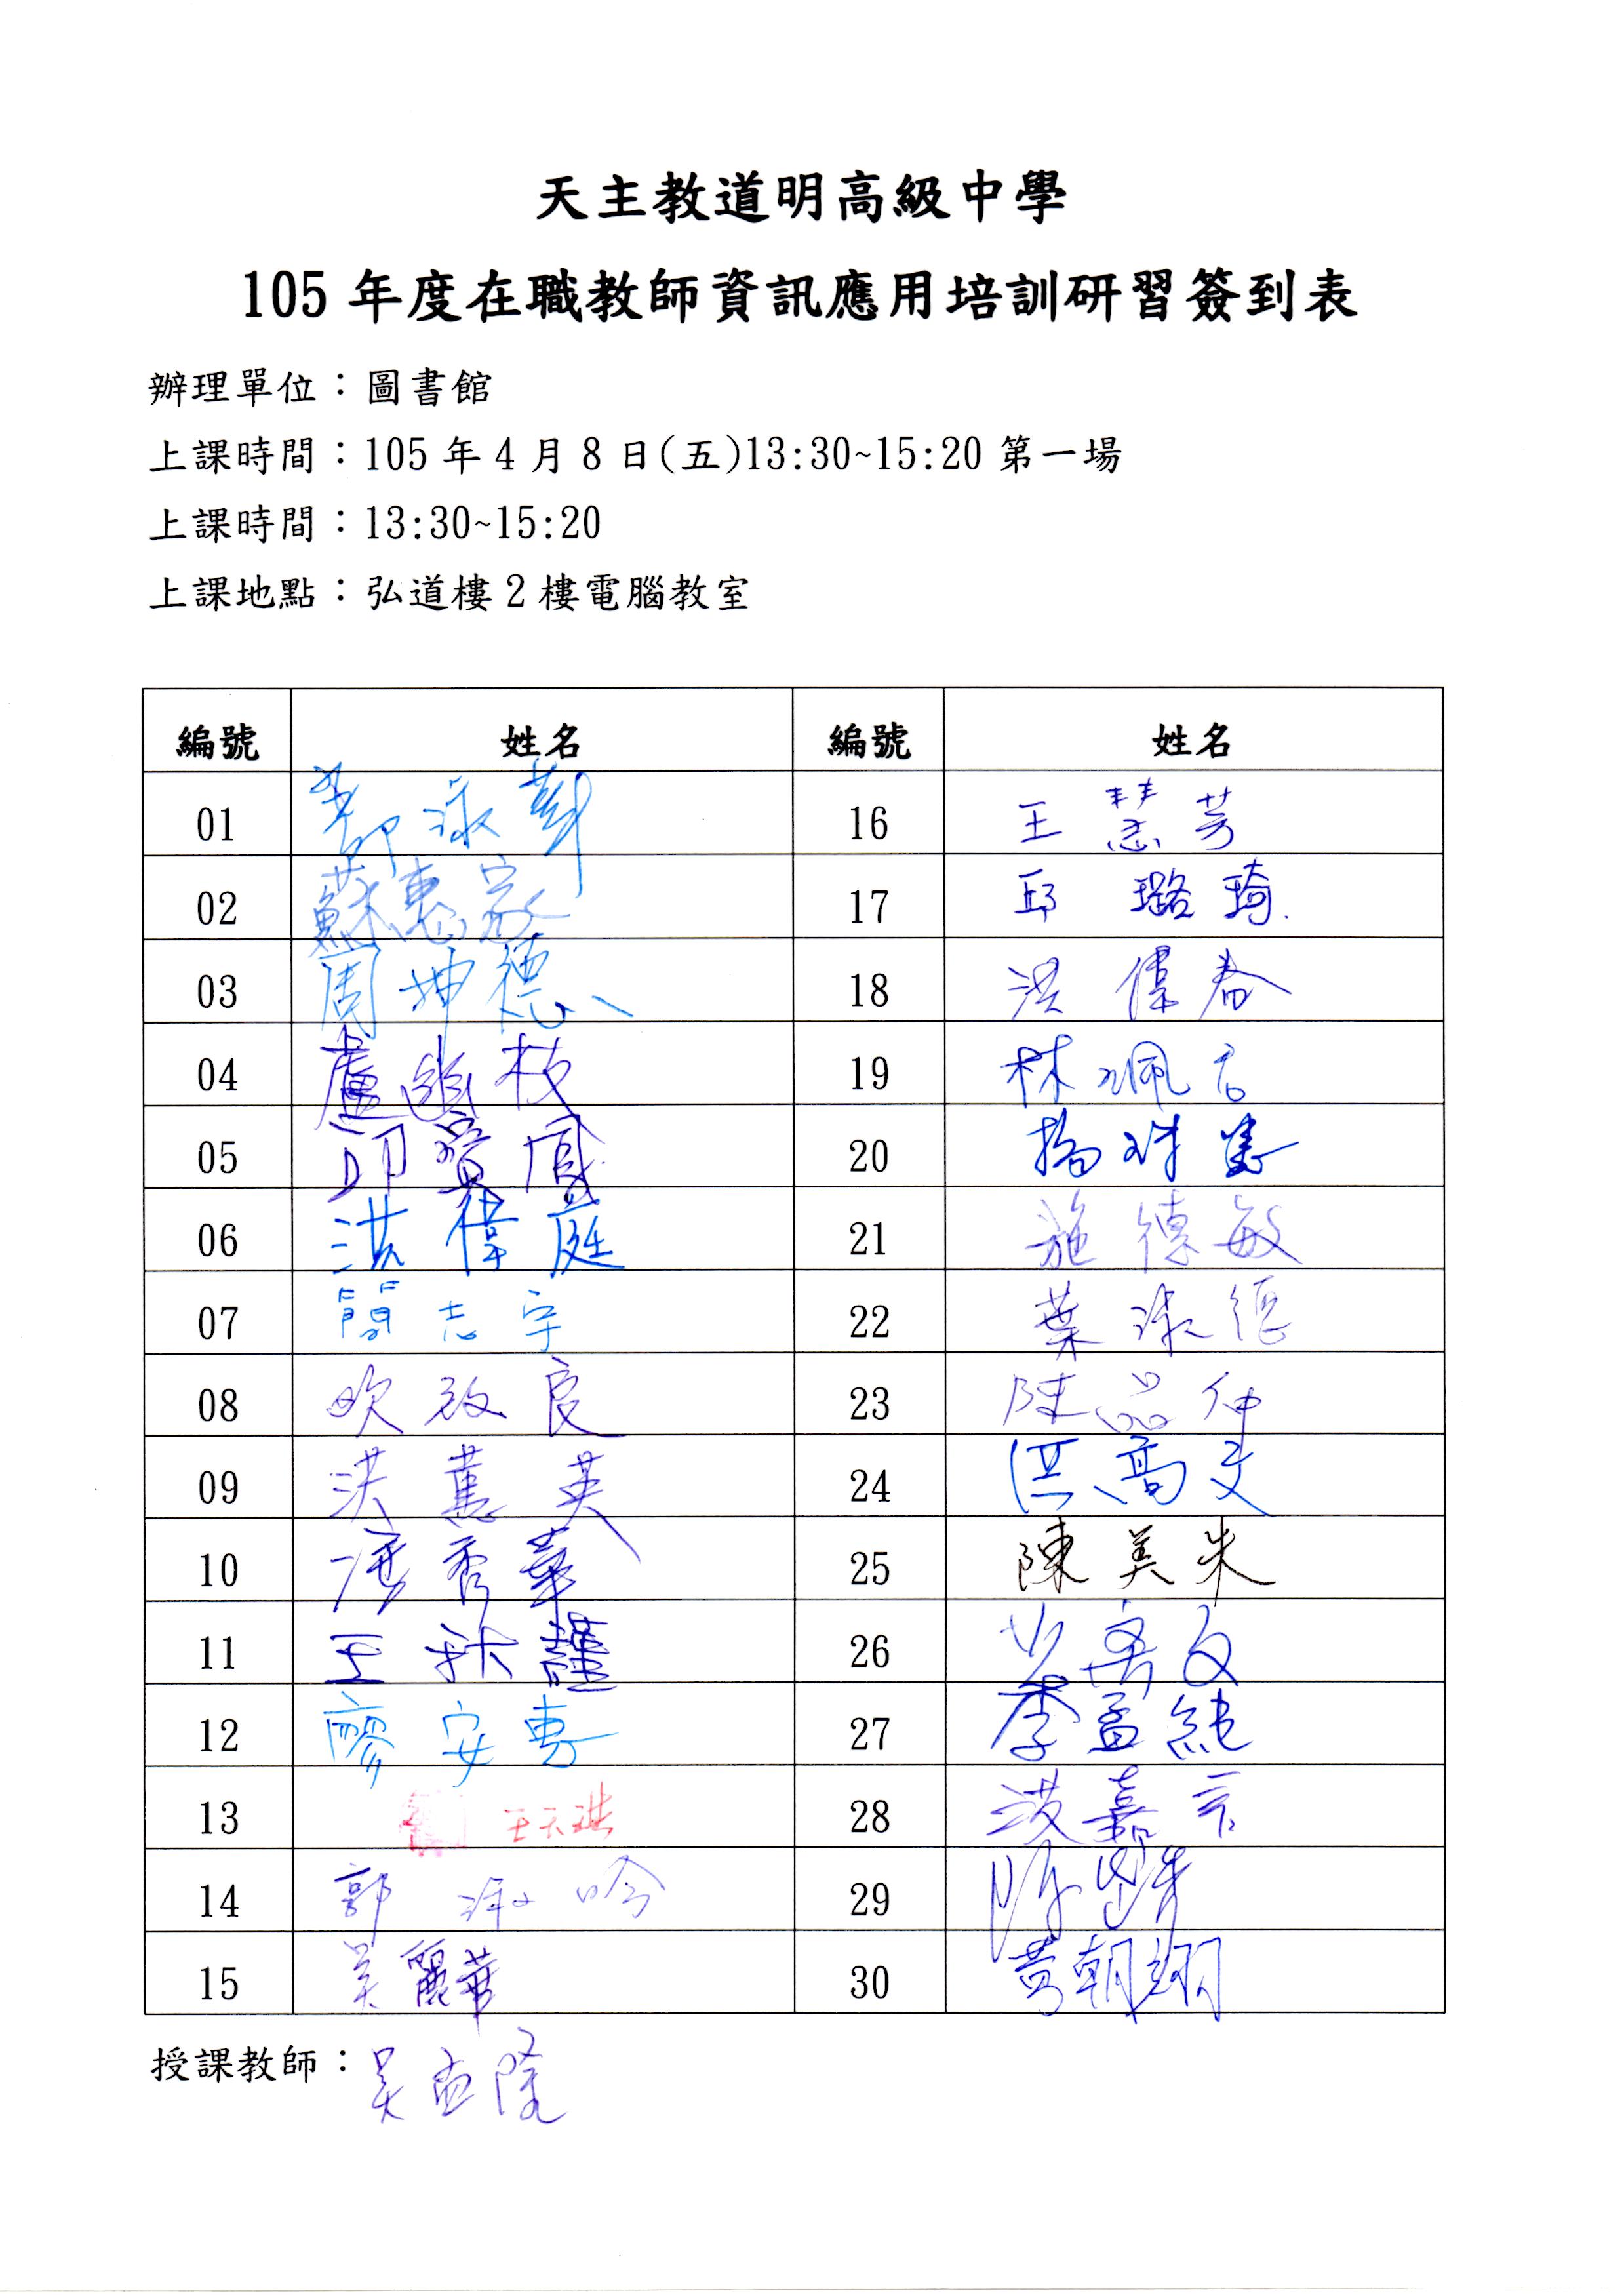 天主教道明高級中學
105 年度在職教師資訊應用培訓研習簽到表
辦理單位：圖書館
上課時間：105 年 4 月 8 日(五)13:30~15:20 第一場
上課時間：13:30~15:20
上課地點：弘道樓 2 樓電腦教室
編號 姓名 編號 姓名
01 16 王慧芳
02 蘇惠 17 邱璐琦
03 周坤德 18 洪偉春
04 盧幽枝 19 林珮
05 邱寶鳳 20 楊
06 洪偉庭 21 施德敏
07 簡志宇 22 葉
08 良 23 陳品仲
09 洪蕙英 24 洪高文
10 秀華 25 陳美朱
11 王秋謹 26
12 廖安專 27 李孟純
13 王天 28 洪嘉言
14 郭淑吟 29
15 吳麗華 30 黃朝翊
授課教師：吳孟隆